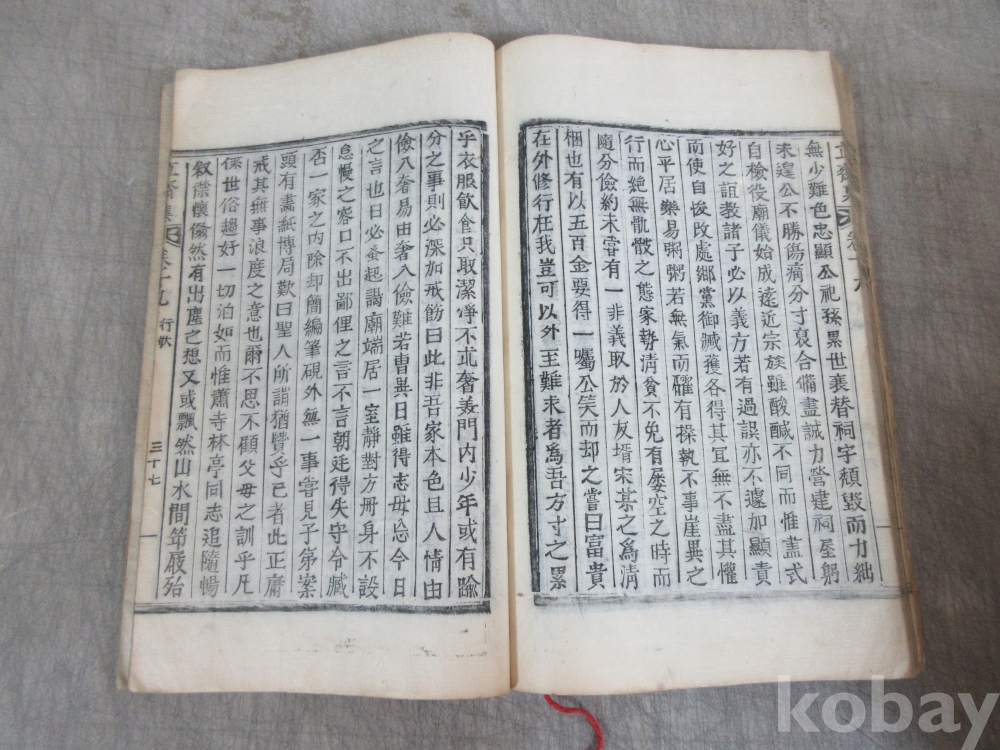 無少難色忠顯公祀孫累世衰替祠宇頹毀而力絀
未遑公不勝傷痛分寸裒合備盡誠力營建祠屋躬
自檢役廟儀始成遠近宗族雖酸醎不同而惟盡式
好之誼教諸子必以義方若有過誤亦不遽加顯責
而使自悛改處鄉黨御減獲各得其宜無不盡其懽
心平居樂易粥粥若無氣而確有操執不事崖異之
行而絶無骯骸之態家勢清貧不免有屢空之時而
隨分儉約未甞有一非義取於人友壻宋某之爲清
梱也有以五百金要得一囑公笑而却之嘗曰富貴
在外修行在我豈可以外至難未者爲吾方寸之累
乎衣服飮食只取潔凈不求奢羙門内少年或有踰
分之事則必深加戒飭曰此非吾家本色且人情由
儉入奢易由奢入儉難若曹異日雖得志毋忘今日
之言也日必蚤起謁廟端居一室靜對方冊身不設
怠慢之容口不出鄙俚之言不言朝廷得失守令臧
否一家之内除却簡編筆硯外無一事嘗見子弟案
頭有畵紙博局歎曰聖人所謂猶賢乎已者此正庸
戒其無事浪度之意也爾不思不顧父母之訓乎凡
係世俗趨好一切泊如而惟蕭寺林亭同志追隨暢
叙襟懷翛然有出塵之想又或飄然山水間笻屐殆
立齋集 卷十九 行狀 三十七